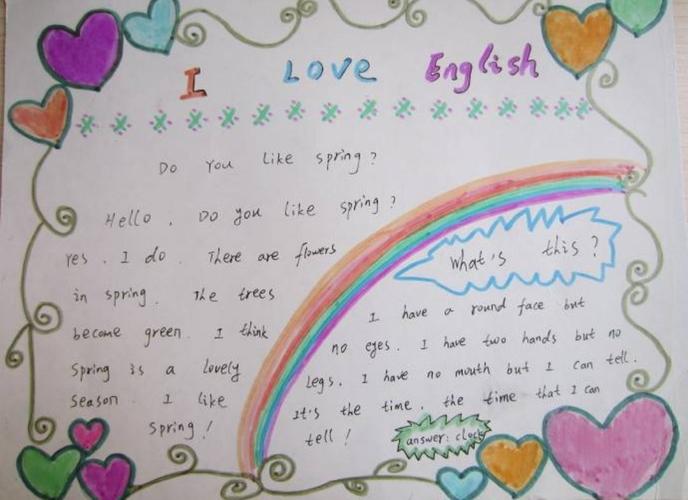 I LOVE English
Do You like spring?
Hello. Do you like spring?
Yes. I do. There are flowers
in spring. The trees
become green. I think
Spring is a lovely
Season. I like
Spring!
What's this?
I have a round face but
no eyes. I have two hands but no
legs. I have no mouth but I can tell.
It's the time. the time that I can
tell!
answer: clock